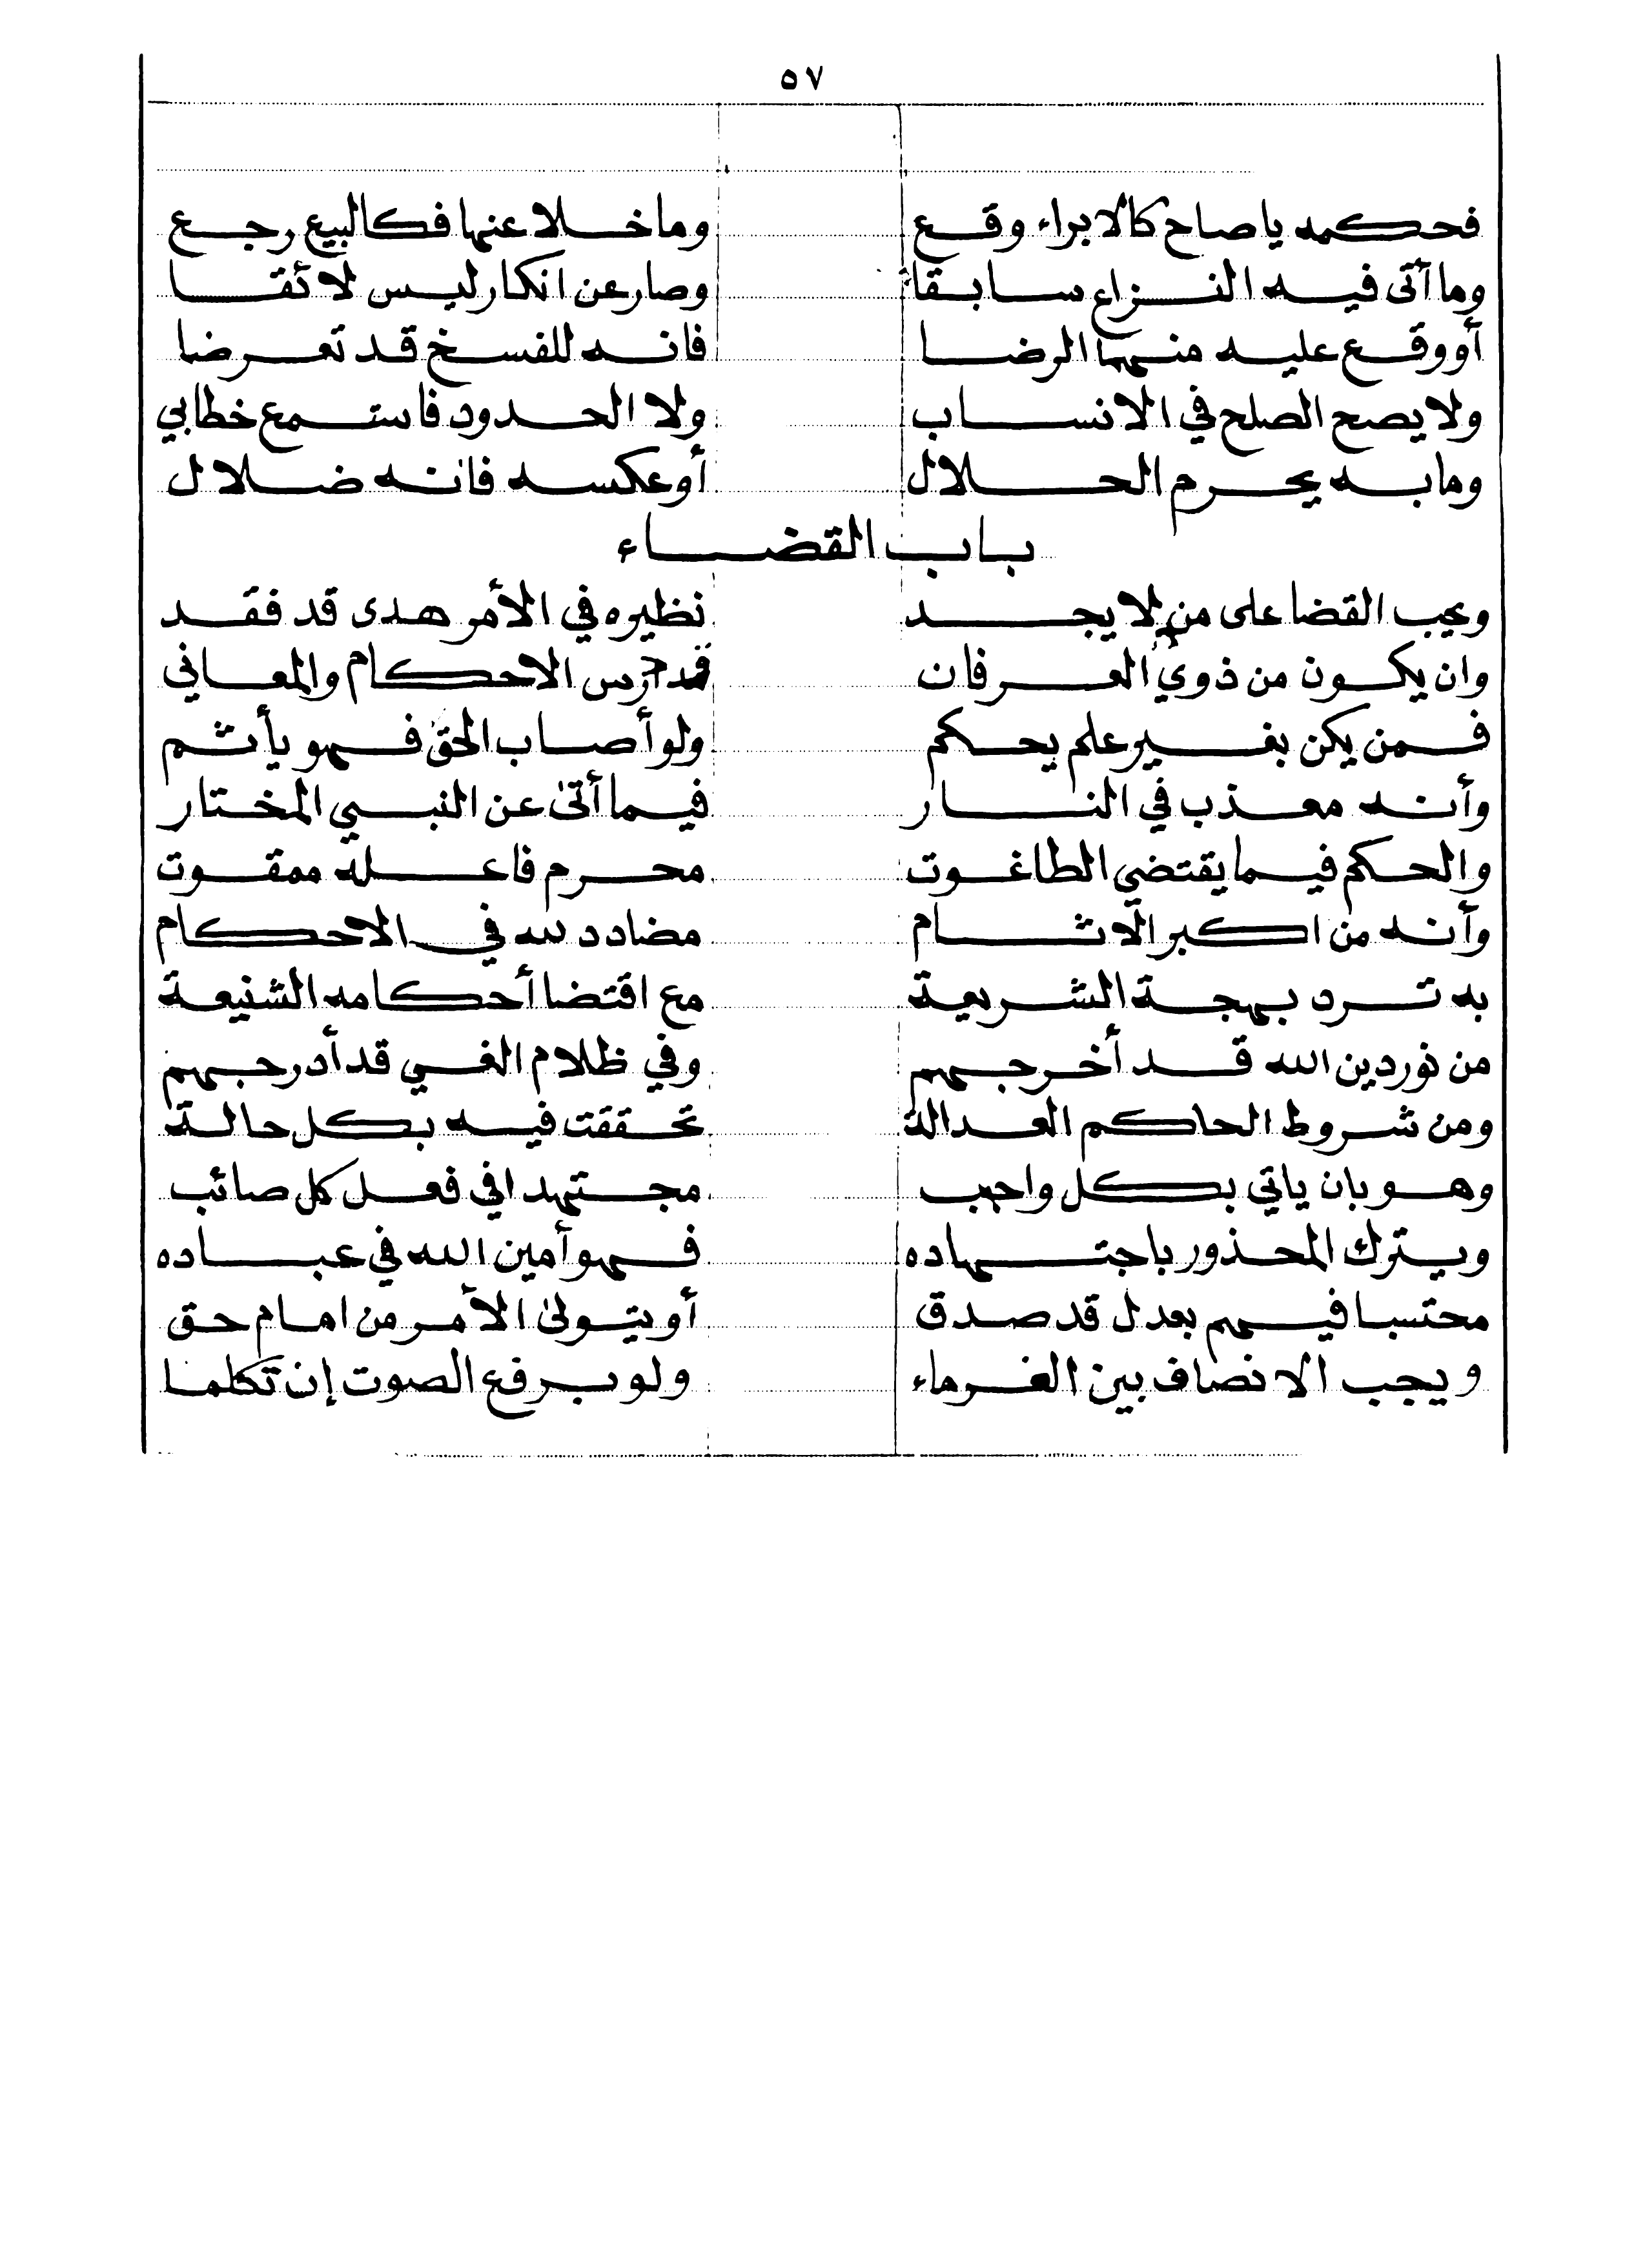 ٥٧
فحكمه يا صاح كالابراء وقع وما خلا عنها فكالبيع رجع
وما أتى فيه النزاع سابقا وصار عن انكار ليس لائقا
أو وقع عليه منهما الرضا فانه للفسخ قد تعرضا
ولا يصح الصلح في الانساب ولا الحدود فاستمع خطابي
وما به يحرم الحلال أو عكسه فانه ضلال
باب القضاء
ويجب القضا على من لا يجد نظيره في الأمر هدى قد فقد
وان يكون من ذوي العرفان قد درس الاحكام والمعاني
فمن يكن بغير علم يحكم ولو أصاب الحق فهو يأثم
وأنه معذب في النار فيما أتى عن النبي المختار
والحكم فيما يقتضي الطاغوت محرم فاعله ممقوت
وأنه من اكبر الاثام مضادد لله في الاحكام
به ترد بهجة الشريعة مع اقتضا أحكامه الشنيعة
من نور دين الله قد أخرجهم وفي ظلام الغي قد أدرجهم
ومن شروط الحاكم العدالة تحققت فيه بكل حالة
وهو بان ياتي بكل واجب مجتهدا في فعل كل صائب
ويترك المحذور باجتهاده فهو أمين الله في عباده
محتسبا فيهم بعدل قد صدق أو يتولى الأمر من امام حق
ويجب الانصاف بين الغرماء ولو برفع الصوت إن تكلما